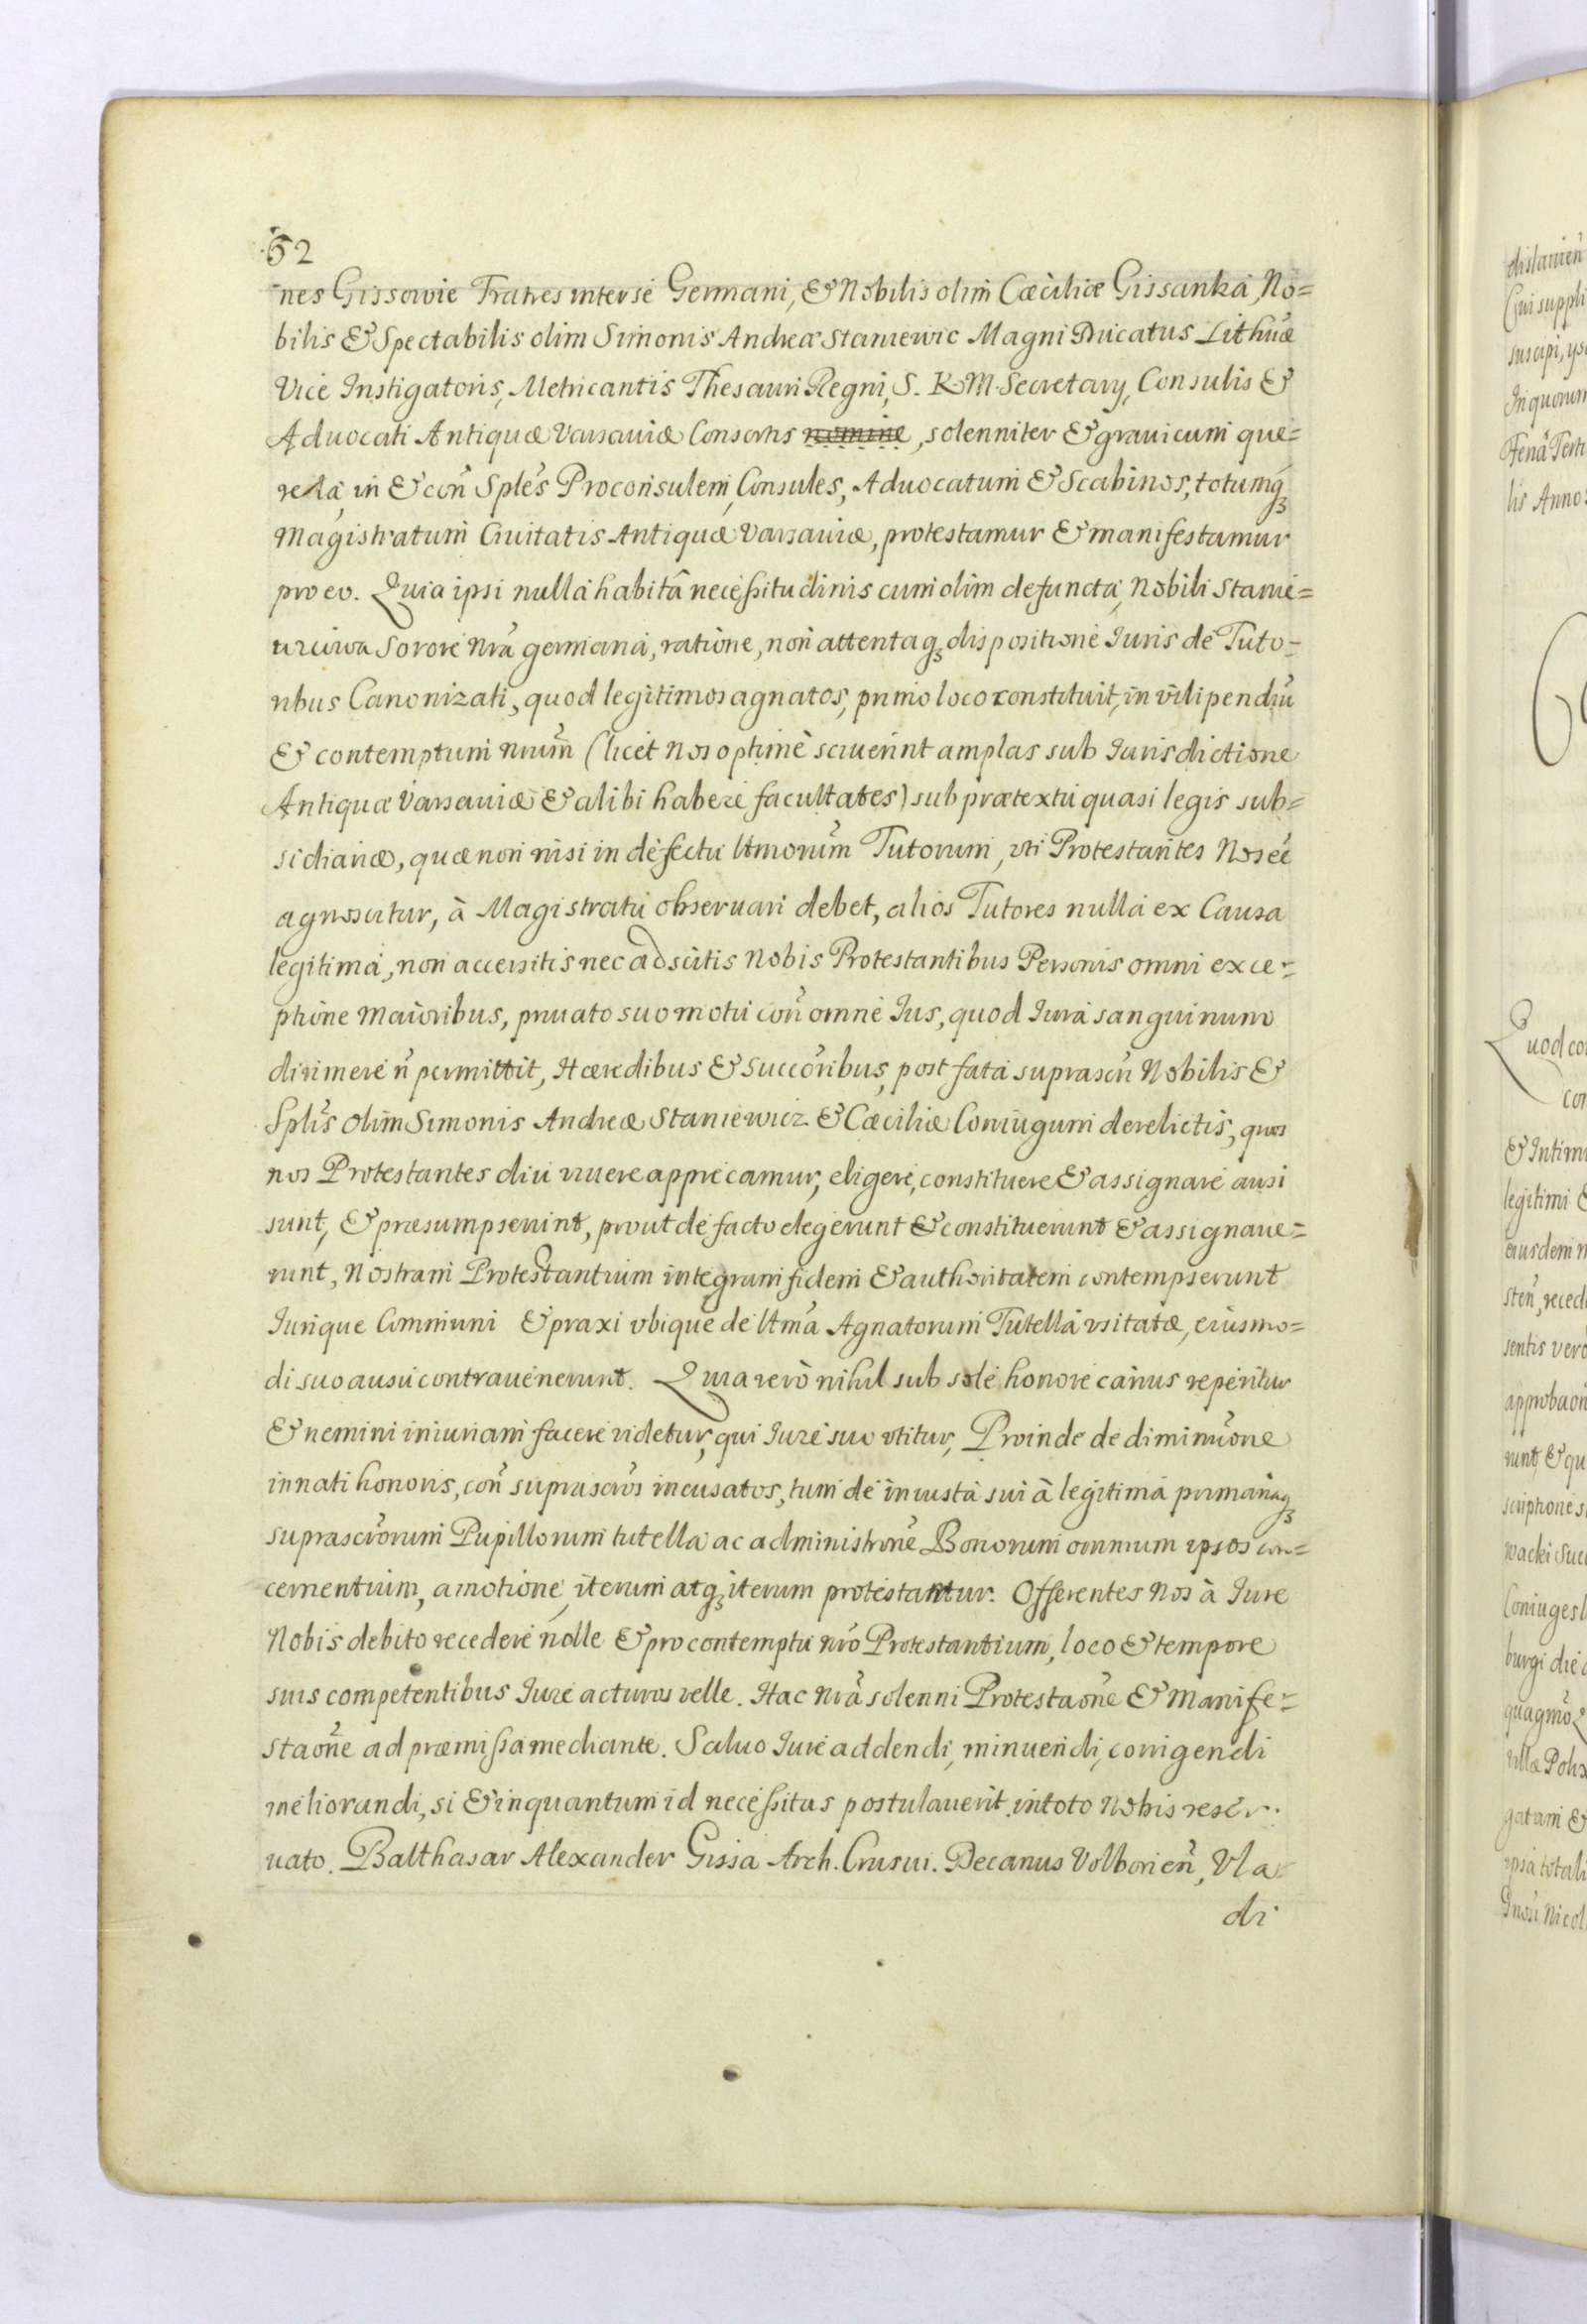 52
nes Gissowie Fratres inter se Germani, & Nobilis olim Cæciliæ Gissanka, No=
bilis & Spectabilis olim Simonis Andreæ Staniewic Magni Ducatus Lithuæ
Vice Instigatoris, Metricantis Thesauri Regni, S. R. M. Secretary, Consulis &
Aduocati Antiquæ Varsauiæ Consortis nomine, solenniter & graui cum que=
rela, in & con̄ Sples Proconsulem, Consules, Aduocatum & Scabinos, totumq3
Magistratum Ciuitatis Antiquæ Varsauiæ, protestamur & manifestamur
pro eo. Quia ipsi nulla habitâ necessitudinis cum olim defuncta, Nobili Stanie=
wiciwa Sorore nrã germana, ratione, non attentaq3 dispositione Iuris de Tuto=
ribus Canonizati, quod legitimos agnatos, primo loco constituit, in vilipendiũ
& contemptum nrum̃ (licet nos optimè sciuerint amplas sub Iurisdictione
Antiquæ Varsauiæ & alibi habere facultates) sub prætextu quasi legis sub=
sidiariæ, quæ non nisi in defectu ltmorum̃ Tutorum, vti Protestantes Nos eẽ
agnoscitur, à Magistratu obseruari debet, alios Tutores nulla ex Causa
legitima, non accersitis nec adscitis Nobis Protestantibus Personis omni exce=
ptione maioribus, priuato suo motu con̄ omne Ius, quod Iura sanguinum
dirimere n̄ permittit, Hæredibus & succoribus, post fata suprascri Nobilis &
Splis olim Simonis Andreæ Staniewicz & Cæciliæ Coniugum derelictis, quos
nos Protestantes diu viuere apprecamur, eligere, constituere & assignare ausi
sunt, & præsumpserunt, prout de facto elegerunt & constituerunt & assignaue=
runt, Nostram Protestantium integram fidem & authoritatem contempserunt
Iurique Communi & praxi vbique de ltmã Agnatorum Tutella vsitatæ, eiusmo=
di suo ausu contrauenerunt. Quia verò nihil sub sole honore carius reperitur
& nemini iniuriam facere videtur, qui Iure suo vtitur, Proinde de diminuõne
innati honoris, con̄ suprascros incusatos, tum de iniusta sui à legitima primariaq3
suprascrorum Pupillorum tutella ac administrõne Bonorum omnium ipsos con=
cernentium, amotione, iterum atq3 iterum protestantur. Offerentes Nos à Iure
Nobis debito recedere nolle & pro contemptu nrõ Protestantium, loco & tempore
suis competentibus Iure acturos velle. Hac nrã solenni Protestaõne & Manife=
staõne ad præmissa mediante. Saluo Iure addendi, minuendi, corrigendi
meliorandi, si & inquantum id necessitas postulauerit in toto Nobis reser=
uato. Balthasar Alexander Gissa Arch. Crusui. Decanus Volborien̄, Vla=
di